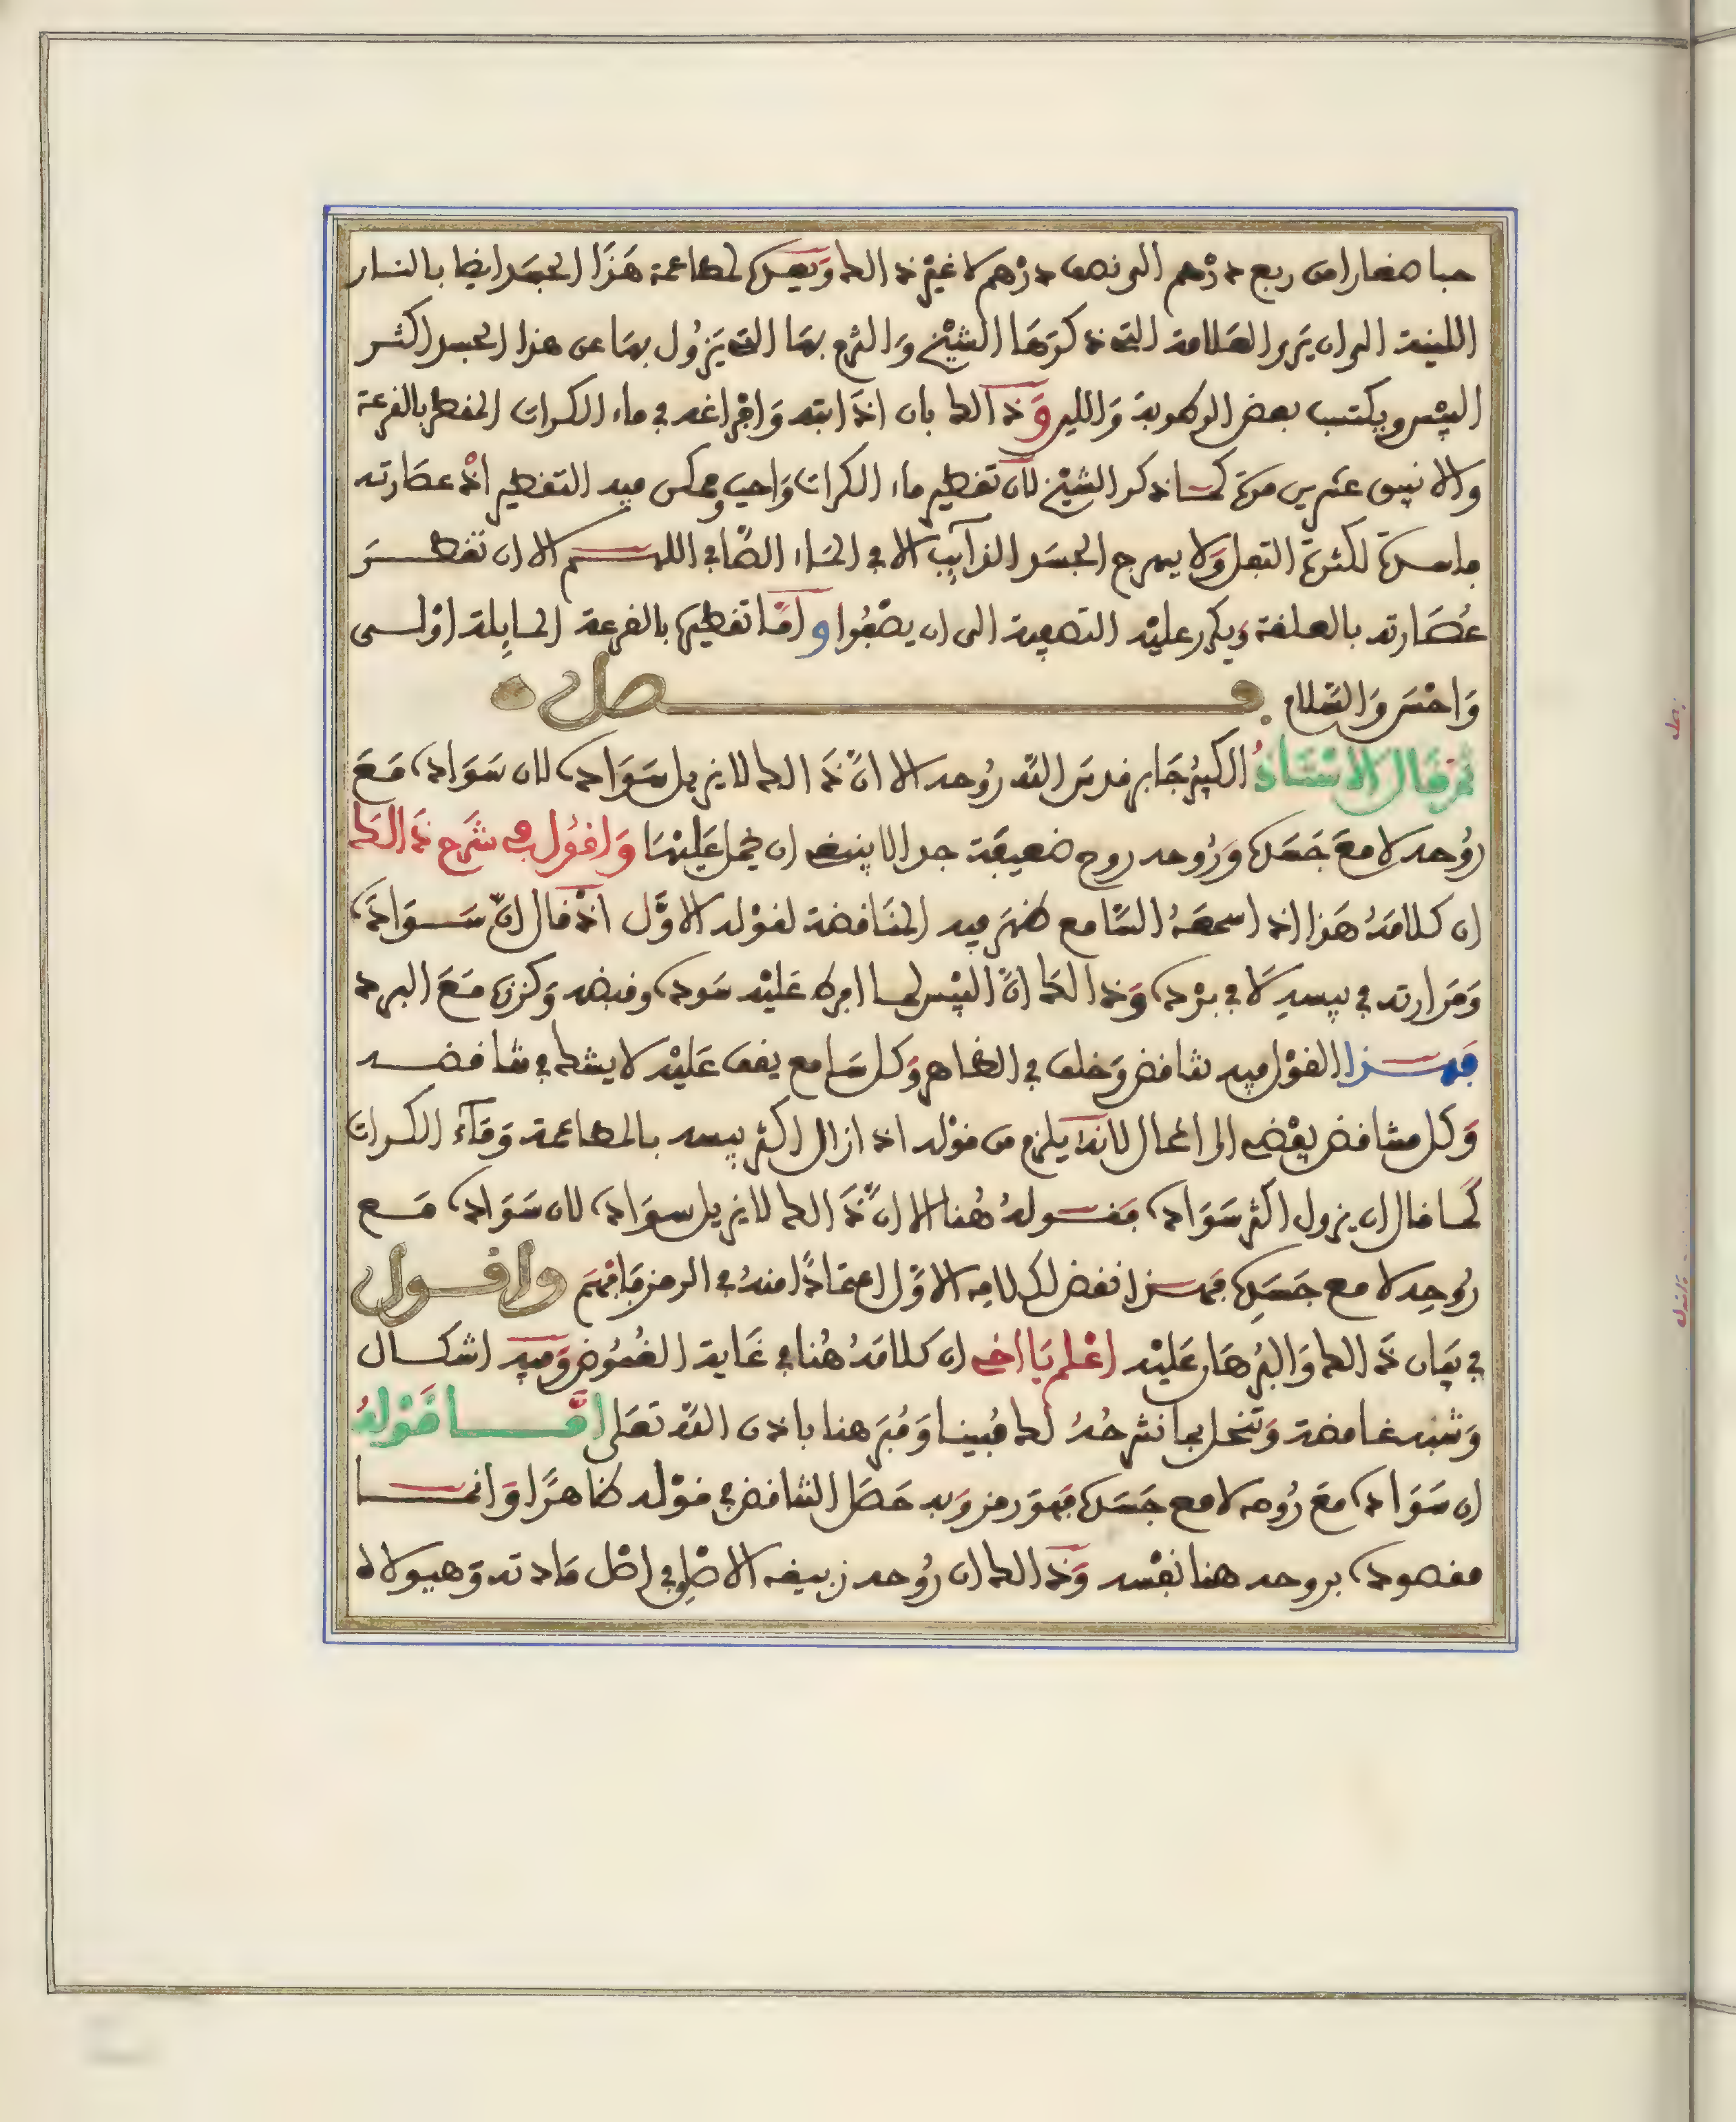 حبا صغارا من ربع درهم الى نصف درهم لا غير ذالك وَيعيد لمطاعمة هَذَا الجسَد ايضا بالنار
اللينة الى ان يَرى العَلامة التى ذكرَهَا الشيْخ وَالشرح بهَا التى يَزُول بهَا عن هذا الجسد اكثر
اليبْس ويكتسب بعض الرطوبة وَاللين وَذالك بان اذَابته وَافْراغه في ماء الكراث المقطر بالقرعة
والانبيق عشرين مرة كما ذكر الشيْخ لان تقطير ماء الكراث وَاجب وممكن فيه التقطير اذْ عصَارته
جامدة لكثرة التفل وَلا يسرح الجسَد الذآيِب الا في المَاء الصَّافي اللهم الا ان تقطرَ
عُصَارته بالعلقة ويكرر عليْه التصفية الى ان يصْفُوا وامَّا تقطيره بالقرعة المايِلة اوْلى
وَاحْسَن وَالسَّلام فصل
ثم قال الاسْتَاذُ الكبيْر جَابر قدسَ اللّه رُوحه الا انّ ذَالك لا يزيل سَوَاده لان سَوَاده مَعَ
رُوحه لا معَ جَسَده وَرُوحه روح ضعيفَة جدا لا ينبغى ان يحمل عَليْهَا وَاقوُل في شَرح ذَالكَ
ان كلامَهُ هَذا اذا سمعَهُ السَّامع ظهَر فيه المنَاقضة لقوْله الاوَّل اذْ قال انّ سَوَادَه
وَمَرارته في يبسهِ لَا في برْده وَذَالكَ انّ اليبْس لما افرط عَليْه سَوده وقبضه وَكززه مَعَ البرد
فهذا القوْل فيه تناقض وَخلف في الظاهر وَكل سَامع يقف عَليْه لا يشك في تناقضه
وَكل متناقض يفْضى الى المحال لانه يلزم من قوْله اذ ازال اكثر يبسه بالمطاعمة وَمَآء الكراث
كمَا قال ان يزول اكثر سَوَاده فقولهُ هُنا الا انّ ذَالك لا يزيل سوَاده لان سَوَاده مَع
رُوحِه لا مع جَسَدِه فهذا نقض لكلامِه الاوّل اعتمَادًا منهُ في الرمز فَافْهَم وَاقول
في بيَان ذَالك وَالبُرهَان عَليْه اعْلم يَا اخى ان كلامَهُ هُنا في غَاية الغُمُوض وَفيه اشكال
وَشبه غامضة وَتنحل بما نشرحُهُ لك مُبينا وَمُبَرهنا باذن اللّه تعَلى امَّا قوْلهُ
ان سَوَاده معَ رُوحه لا مع جَسَده فهوَ رمز وَبه حَصَل التناقض في قوْله ظاهرًا وَانما
مقصوده بروحه هنا نفْسه وَذَالك ان رُوحه زيبقه الاصْلى في اصْل مَادته وَهيولاه